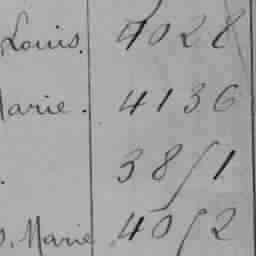 Louis. 4028
Marie. 4136
. 3851
S. Marie 4052